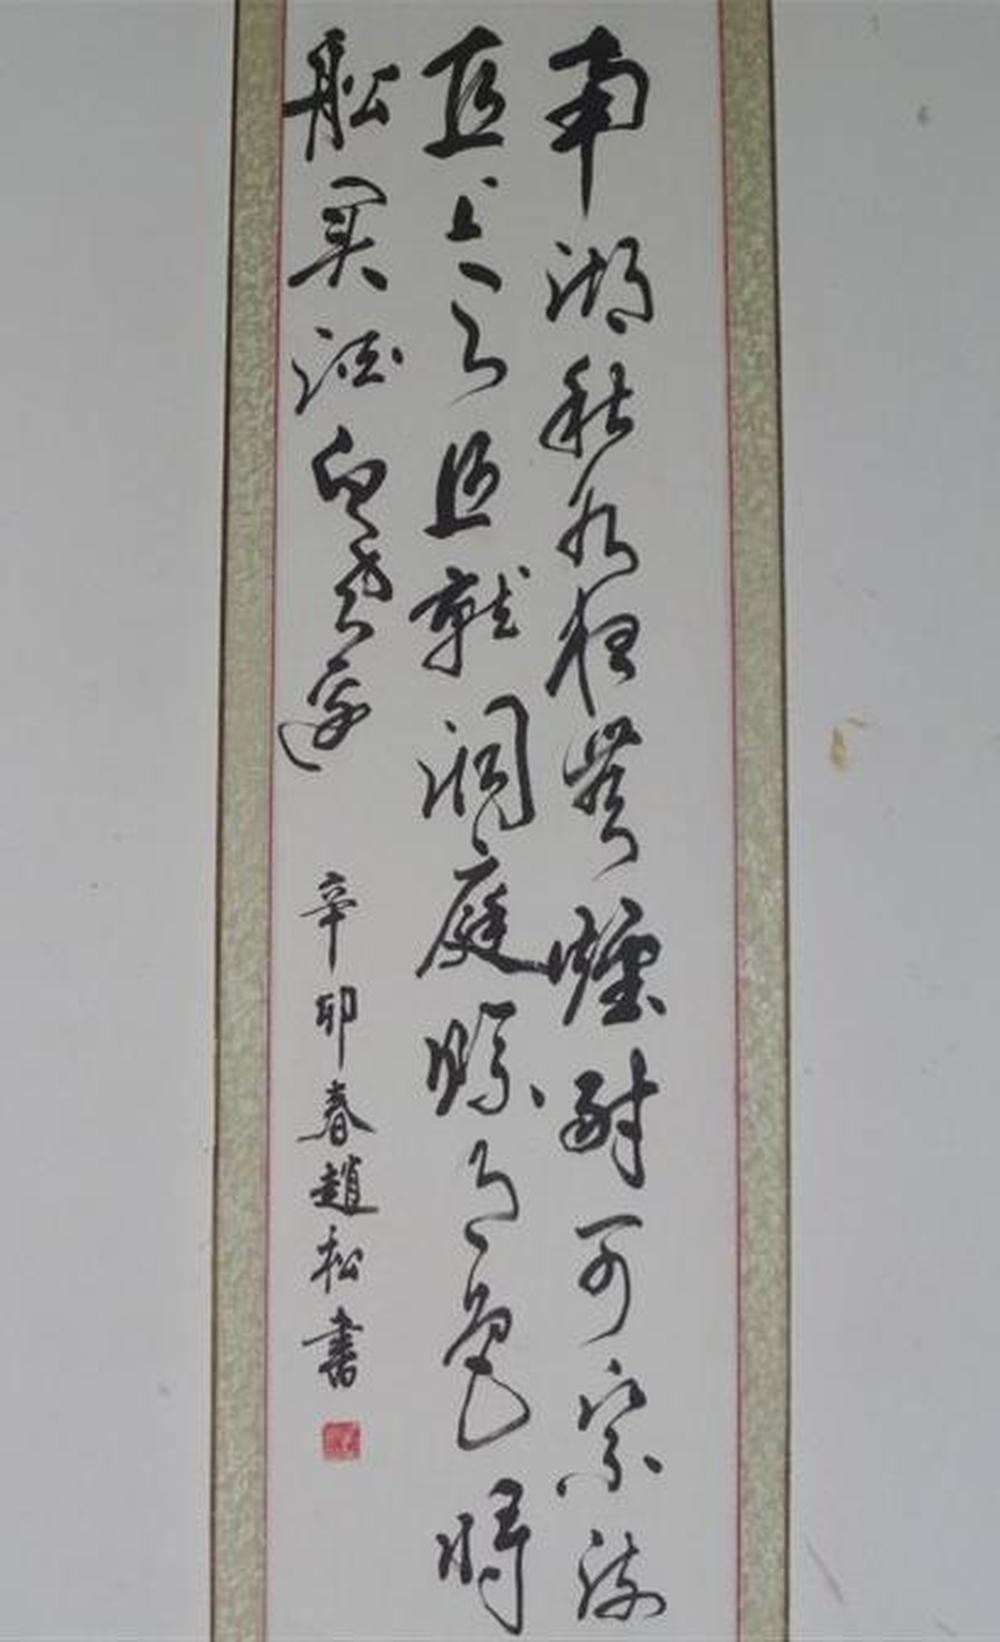 南湖秋水夜無煙耐可乘流
直上天且就洞庭賒月色將
船买酒白雲邊
辛卯春趙松書